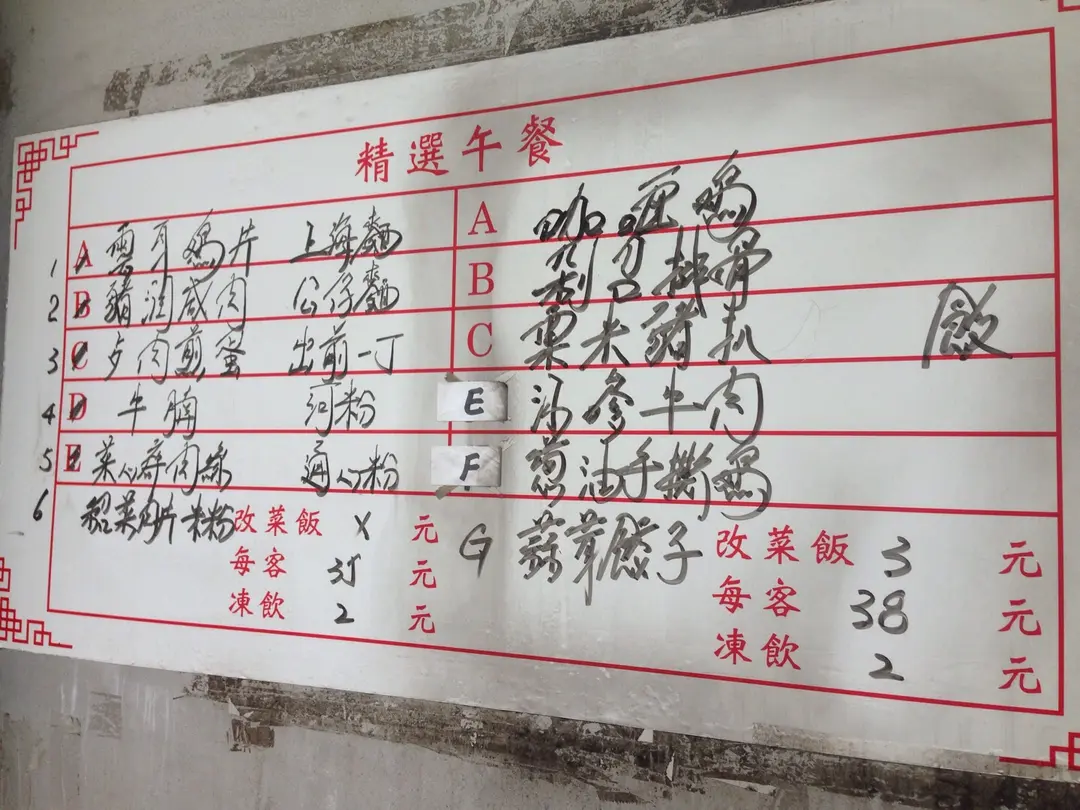 精選午餐
1 A 雲耳鸡片 上海麵
2 B 豬润咸肉 公仔麵
3 C 歺肉煎蛋 出前一丁
4 D 牛腩 河粉
5 E 菜心痹肉絲 通心粉
6 韶菜肉片米粉
改菜飯 X 元
每客 35 元
凍飲 2 元
A 咖喱鸡
B 排骨
C 粟米豬扒
飯
E 沙爹牛肉
F 葱油手撕鸡
G 子
改菜飯 3 元
每客 38 元
凍飲 2 元